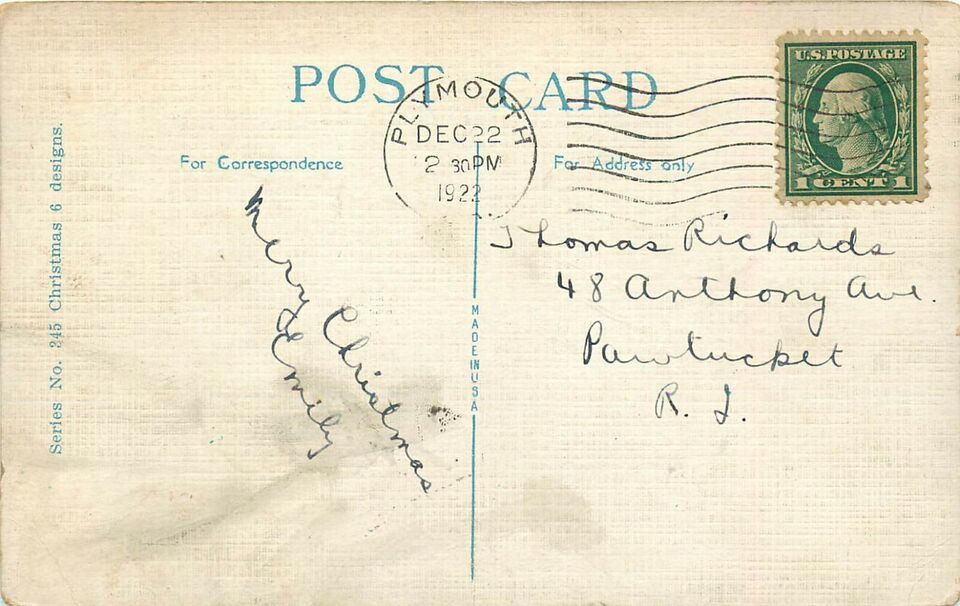 POST CARD
U.S. POSTAGE
1 CENT 1
PLYMOUTH
DEC 22
2 30 PM
1922
For Correspondence
For Address only
Series No. 245 Christmas 6 designs.
MADE IN USA
Merry Christmas
Emily
Thomas Richards
48 Anthony Ave.
Pawtucket
R. I.